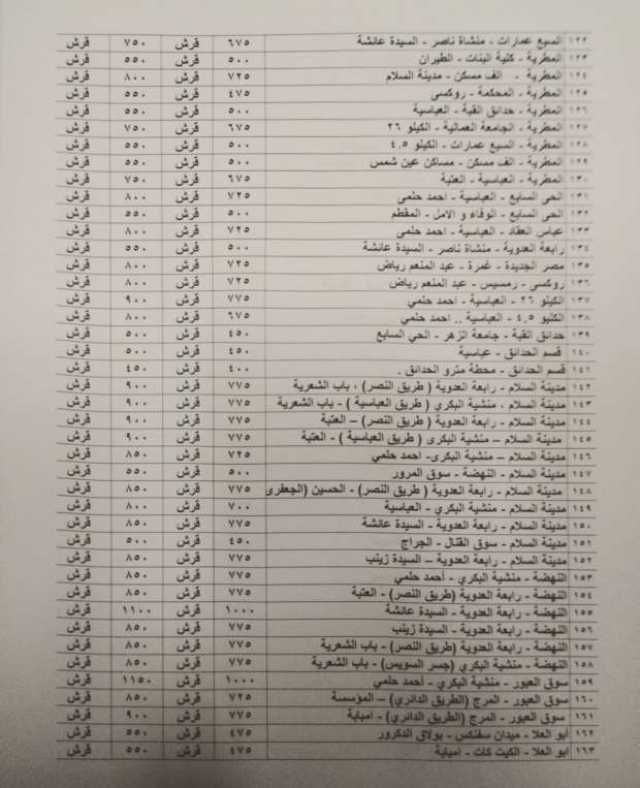 ١٢٢ السبع عمارات - منشاة ناصر - السيدة عائشة ٦٧٥ قرش ٧٥٠ قرش
١٢٣ المطرية - كلية البنات - الطيران ٥٠٠ قرش ٥٥٠ قرش
١٢٤ المطرية - الف مسكن - مدينة السلام ٧٢٥ قرش ٨٠٠ قرش
١٢٥ المطرية - المحكمة - روكسى ٤٧٥ قرش ٥٥٠ قرش
١٢٦ المطرية - حدائق القبة - العباسية ٥٠٠ قرش ٥٥٠ قرش
١٢٧ المطرية - الجامعة العمالية - الكيلو ٢٦ ٦٧٥ قرش ٧٥٠ قرش
١٢٨ المطرية - السبع عمارات - الكيلو ٤.٥ ٥٠٠ قرش ٥٥٠ قرش
١٢٩ المطرية - الف مسكن - مساكن عين شمس ٥٠٠ قرش ٥٥٠ قرش
١٣٠ المطرية - العباسية - العتبة ٦٧٥ قرش ٧٥٠ قرش
١٣١ الحى السابع - العباسية - احمد حلمى ٧٢٥ قرش ٨٠٠ قرش
١٣٢ الحى السابع - الوفاء و الامل - المقطم ٥٠٠ قرش ٥٥٠ قرش
١٣٣ عباس العقاد - العباسية - احمد حلمى ٧٢٥ قرش ٨٠٠ قرش
١٣٤ رابعة العدوية - منشاة ناصر - السيدة عائشة ٥٠٠ قرش ٥٥٠ قرش
١٣٥ مصر الجديدة - غمرة - عبد المنعم رياض ٧٢٥ قرش ٨٠٠ قرش
١٣٦ روكسي - رمسيس - عبد المنعم رياض ٧٢٥ قرش ٨٠٠ قرش
١٣٧ الكيلو ٢٦ - العباسية - احمد حلمي ٧٧٥ قرش ٩٠٠ قرش
١٣٨ الكليو ٤.٥ - العباسية .. احمد حلمي ٦٧٥ قرش ٨٠٠ قرش
١٣٩ حدائق القبة - جامعة الزهر - الحي السابع ٤٥٠ قرش ٥٠٠ قرش
١٤٠ قسم الحدائق - عباسية ٤٥٠ قرش ٥٠٠ قرش
١٤١ قسم الحدائق - محطة مترو الحدائق . ٤٠٠ قرش ٤٥٠ قرش
١٤٢ مدينة السلام - رابعة العدوية ( طريق النصر) ، باب الشعرية ٧٧٥ قرش ٩٠٠ قرش
١٤٣ مدينة السلام ، منشية البكري ( طريق العباسية ) - باب الشعرية ٧٧٥ قرش ٩٠٠ قرش
١٤٤ مدينة السلام - رابعة العدوية ( طريق النصر) – العتبة ٧٧٥ قرش ٩٠٠ قرش
١٤٥ مدينة السلام – منشية البكرى ( طريق العباسية ) - العتبة ٧٧٥ قرش ٩٠٠ قرش
١٤٦ مدينة السلام – منشية البكرى- احمد حلمي ٧٢٥ قرش ٨٥٠ قرش
١٤٧ مدينة السلام - النهضة - سوق المرور ٥٠٠ قرش ٥٥٠ قرش
١٤٨ مدينة السلام - رابعة العدوية ( طريق النصر) - الحسين (الجعفرى ٧٧٥ قرش ٨٥٠ قرش
١٤٩ مدينة السلام - منشية البكري - العباسية ٧٠٠ قرش ٨٠٠ قرش
١٥٠ مدينة السلام - رابعة العدوية - السيدة عائشة ٧٧٥ قرش ٨٥٠ قرش
١٥١ مدينة السلام - سوق القنال - الجراج ٤٥٠ قرش ٥٠٠ قرش
١٥٢ مدينة السلام - رابعة العدوية – السيدة زينب ٧٧٥ قرش ٨٥٠ قرش
١٥٣ النهضة - منشية البكري - أحمد حلمي ٧٧٥ قرش ٨٥٠ قرش
١٥٤ النهضة - رابعة العدوية (طريق النصر) - العتبة ٧٧٥ قرش ٨٥٠ قرش
١٥٥ النهضة - رابعة العدوية - السيدة عائشة ١٠٠٠ قرش ١١٠٠ قرش
١٥٦ النهضة - رابعة العدوية - السيدة زينب ٧٧٥ قرش ٨٥٠ قرش
١٥٧ النهضة - رابعة العدوية (طريق النصر) - باب الشعرية ٧٧٥ قرش ٨٥٠ قرش
١٥٨ النهضة - منشية البكري (جسر السويس) - باب الشعرية ٧٧٥ قرش ٨٥٠ قرش
١٥٩ سوق العبور - منشية البكري - أحمد حلمي ١٠٠٠ قرش ١١٥٠ قرش
١٦٠ سوق العبور - المرج (الطريق الدائري) – المؤسسة ٧٢٥ قرش ٨٥٠ قرش
١٦١ سوق العبور - المرج (الطريق الدائري) - امبابة ٧٧٥ قرش ٩٠٠ قرش
١٦٢ أبو العلا - ميدان سفنكس - بولاق الدكرور ٤٧٥ قرش ٥٥٠ قرش
١٦٣ أبو العلا - الكيت كات - امبابة ٤٧٥ قرش ٥٥٠ قرش